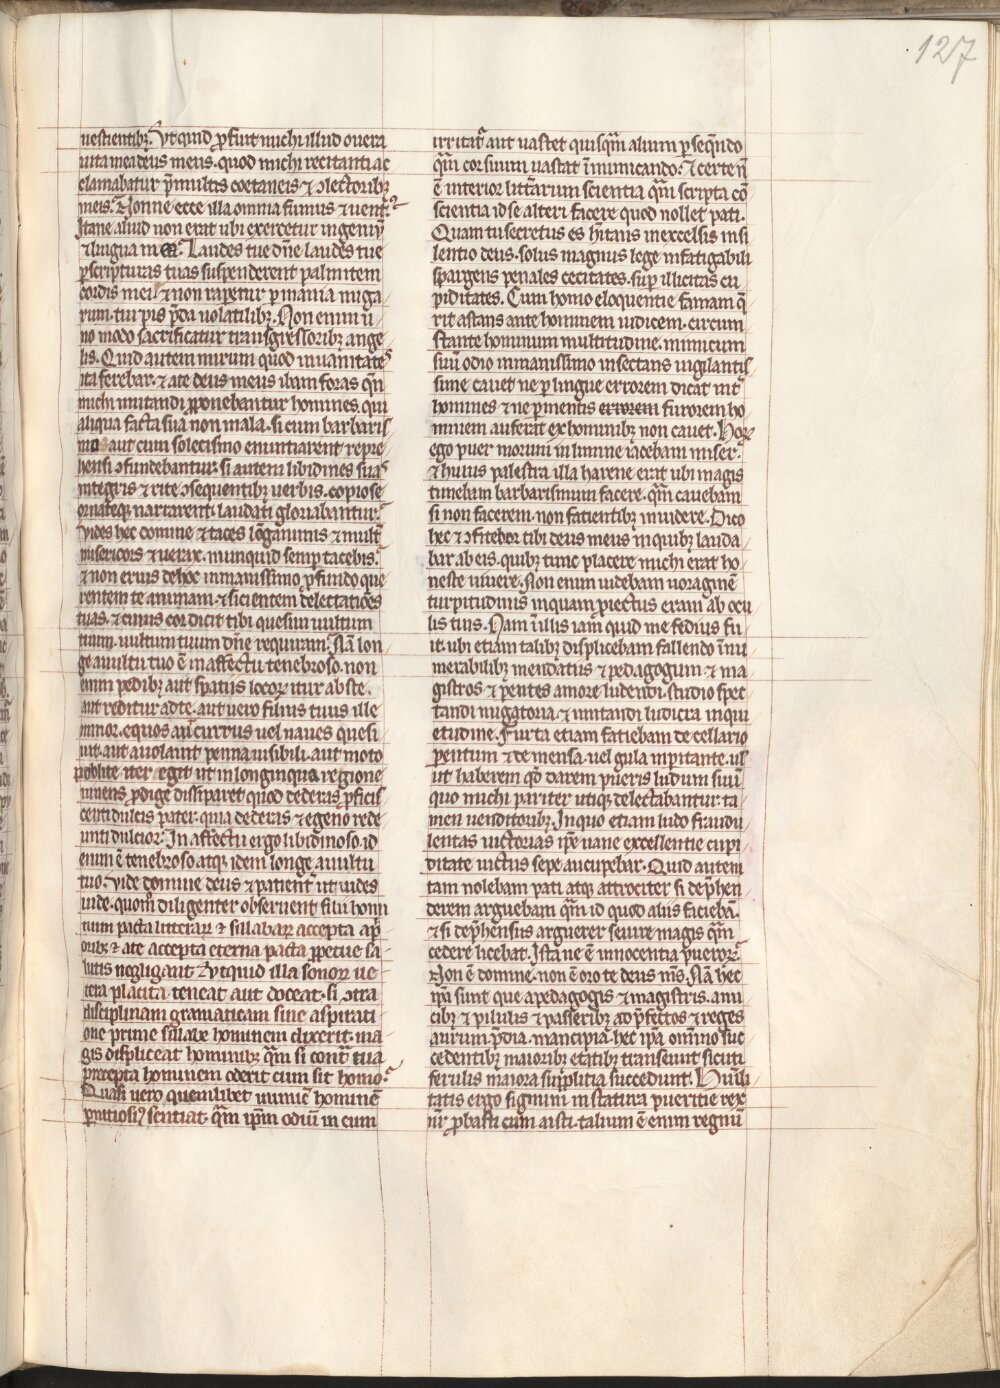 127
uestientibꝫ. Vt quid ꝓfuit michi illud o uera
uita mea deus meus. quod michi recitanti ac
clamabatur p̄ multis coetaneis ⁊ ꝯlectoribꝫ
meis. Nonne ecce illa omnia fumus ⁊ uent᷒.
Itane aliud non erat ubi exerceretur ingeniū
⁊ lingua mea. Laudes tue dn̄e laudes tue
ꝑ scripturas tuas suspenderent palmitem
cordis mei ⁊ non raperetur ꝑ inania nuga
rum. turpis p̄da uolatilibꝫ. Non enim u
no modo sacrificatur transgressoribꝫ ange
lis. Quid autem mirum quod in uanitates
ita ferebar. ⁊ a te deus meus ibam foras qn̄
michi imitandi ꝓponebantur homines. qui
aliqua facta sua non mala. si cum barbaris
mo aut cum solecismo enuntiarent repre
hensi ꝯfundebantur. si autem libidines suas
integris ⁊ rite ꝯsequentibꝫ uerbis. copiose
ornateqꝫ narrarent laudati gloriabantur.
Vides hec domine ⁊ taces longanimis ⁊ mult̄
misericors ⁊ uerax. nunquid semꝑ tacebis.
⁊ non eruis de hoc inmanissimo ꝓfundo que
rentem te animam ⁊ sicientem delectatiões
tuas. ⁊ cuius cor dicit tibi quesiui uultum
tuum. uultum tuum dn̄e requiram. Nā lon
ge a uultu tuo ē in affectu tenebroso. non
enim pedibꝫ aut spatiis locoꝝ itur abs te.
aut reditur ad te. aut uero filius tuus ille
minor. equos aut currus uel naues quesi
uit. aut auolauit penna uisibili. aut moto
poplite iter egit ut in longinqua regione
uiuens ꝓdige dissiparet quod dederas ꝓficis
centi dulcis pater. quia dederas ⁊ egeno rede
unti dulcior. In affectu ergo libidinoso. id
enim ē tenebroso atqꝫ idem longe a uultu
tuo. Vide domine deus ⁊ patient᷑ ut uides
uide. quom̊ diligenter obseruent filii homi
num pacta litterarꝫ ⁊ sillabarꝫ accepta a p̄
oribꝫ ⁊ a te accepta eterna pacta ꝑpetue sa
lutis negligant. Vt qui illa sonoꝝ ue
tera placita. teneat aut doceat. si ꝯtra
disciplinam gramaticam sine aspirati
one prime sillabe hominem dixerit. ma
gis displiceat hominibꝫ qm̄ si cont᷑ tua
precepta hominem oderit cum sit homo.
Quasi uero quemlibet inimicū hominē
ꝑnitiosi᷒ sentiat. qm̄ ip̄m odiū in eum
irritat᷑ aut uastet quisqm̄ alium ꝑseqn̄do
qm̄ cor suum uastat inimicando. Et certe n̄
ē interior litt᷑arum scientia qm̄ scripta cō
scientia id se alteri facere quod nollet pati.
Quam tu secretus es hītans in excelsis in si
lentio deus. solus magnus lege infatigabili
spargens penales cecitates. suꝑ illicitas cu
piditates. Cum homo eloquentie famam q̄
rit astans ante hominem iudicem. circum
stante hominum multitudine. inimicum
suū odio inmanissimo insectans uigilantis
sime cauet ne ꝑ lingue errorem dicat int᷑
homines ⁊ ne ꝑ mentis errorem furorem ho
minem auferat ex hominibꝫ non cauet. Hoꝝ
ego puer morum in limine iacebam miser.
⁊ huius palestra illa harene erat ubi magis
timebam barbarismum facere. qm̄ cauebam
si non facerem. non facientibꝫ inuidere. Dico
hec ⁊ ꝯfiteor tibi deus meus in quibꝫ lauda
bar ab eis. quibꝫ tunc placere michi erat ho
neste uiuere. Non enim uidebam uoraginē
turpitudinis in quam ꝓiectus eram ab ocu
lis tuis. Nam in illis iam quid me fedius fu
it. ubi etiam talibꝫ displicebam fallendo innu
merabilibꝫ mendatiis ⁊ pedagogum ⁊ ma
gistros ⁊ ꝑentes amore ludendi. studio spec
tandi nugatoria. ⁊ imitandi ludicra inqui
etudine. Furta etiam fatiebam de cellario
ꝑentum ⁊ de mensa. uel gula inꝑitante. ul̄
ut haberem qd̄ darem pueris ludum suū
quo michi pariter utiqꝫ delectabantur. ta
men uenditoribꝫ. In quo etiam ludo fraudu
lentas uictorias ip̄e uane excellentie cupi
ditate uictus sepe aucupebar. Quid autem
tam nolebam pati atqꝫ attrociter si dep̄hen
derem arguebam qm̄ id quod aliis faciebā.
⁊ si dep̄hensus arguerer seuire magis qm̄
cedere licebat. Ista ne ē innocentia pueroꝝ.
Non ē domine. non ē oro te deus m̄s. Nā hec
ip̄a sunt que a pedagogis ⁊ magistris. a nu
cibꝫ ⁊ pilulis ⁊ passeribꝫ ad p̄fectos ⁊ reges
aurum p̄dia. mancipia. hec ip̄a omnino suc
cedentibꝫ maioribꝫ etatibꝫ transeunt sicuti
ferulis maiora supplitia succedunt. Humili
tatis ergo signum in statura pueritie rex
nr̄ ꝓbasti cum aisti. talium ē enim regnū